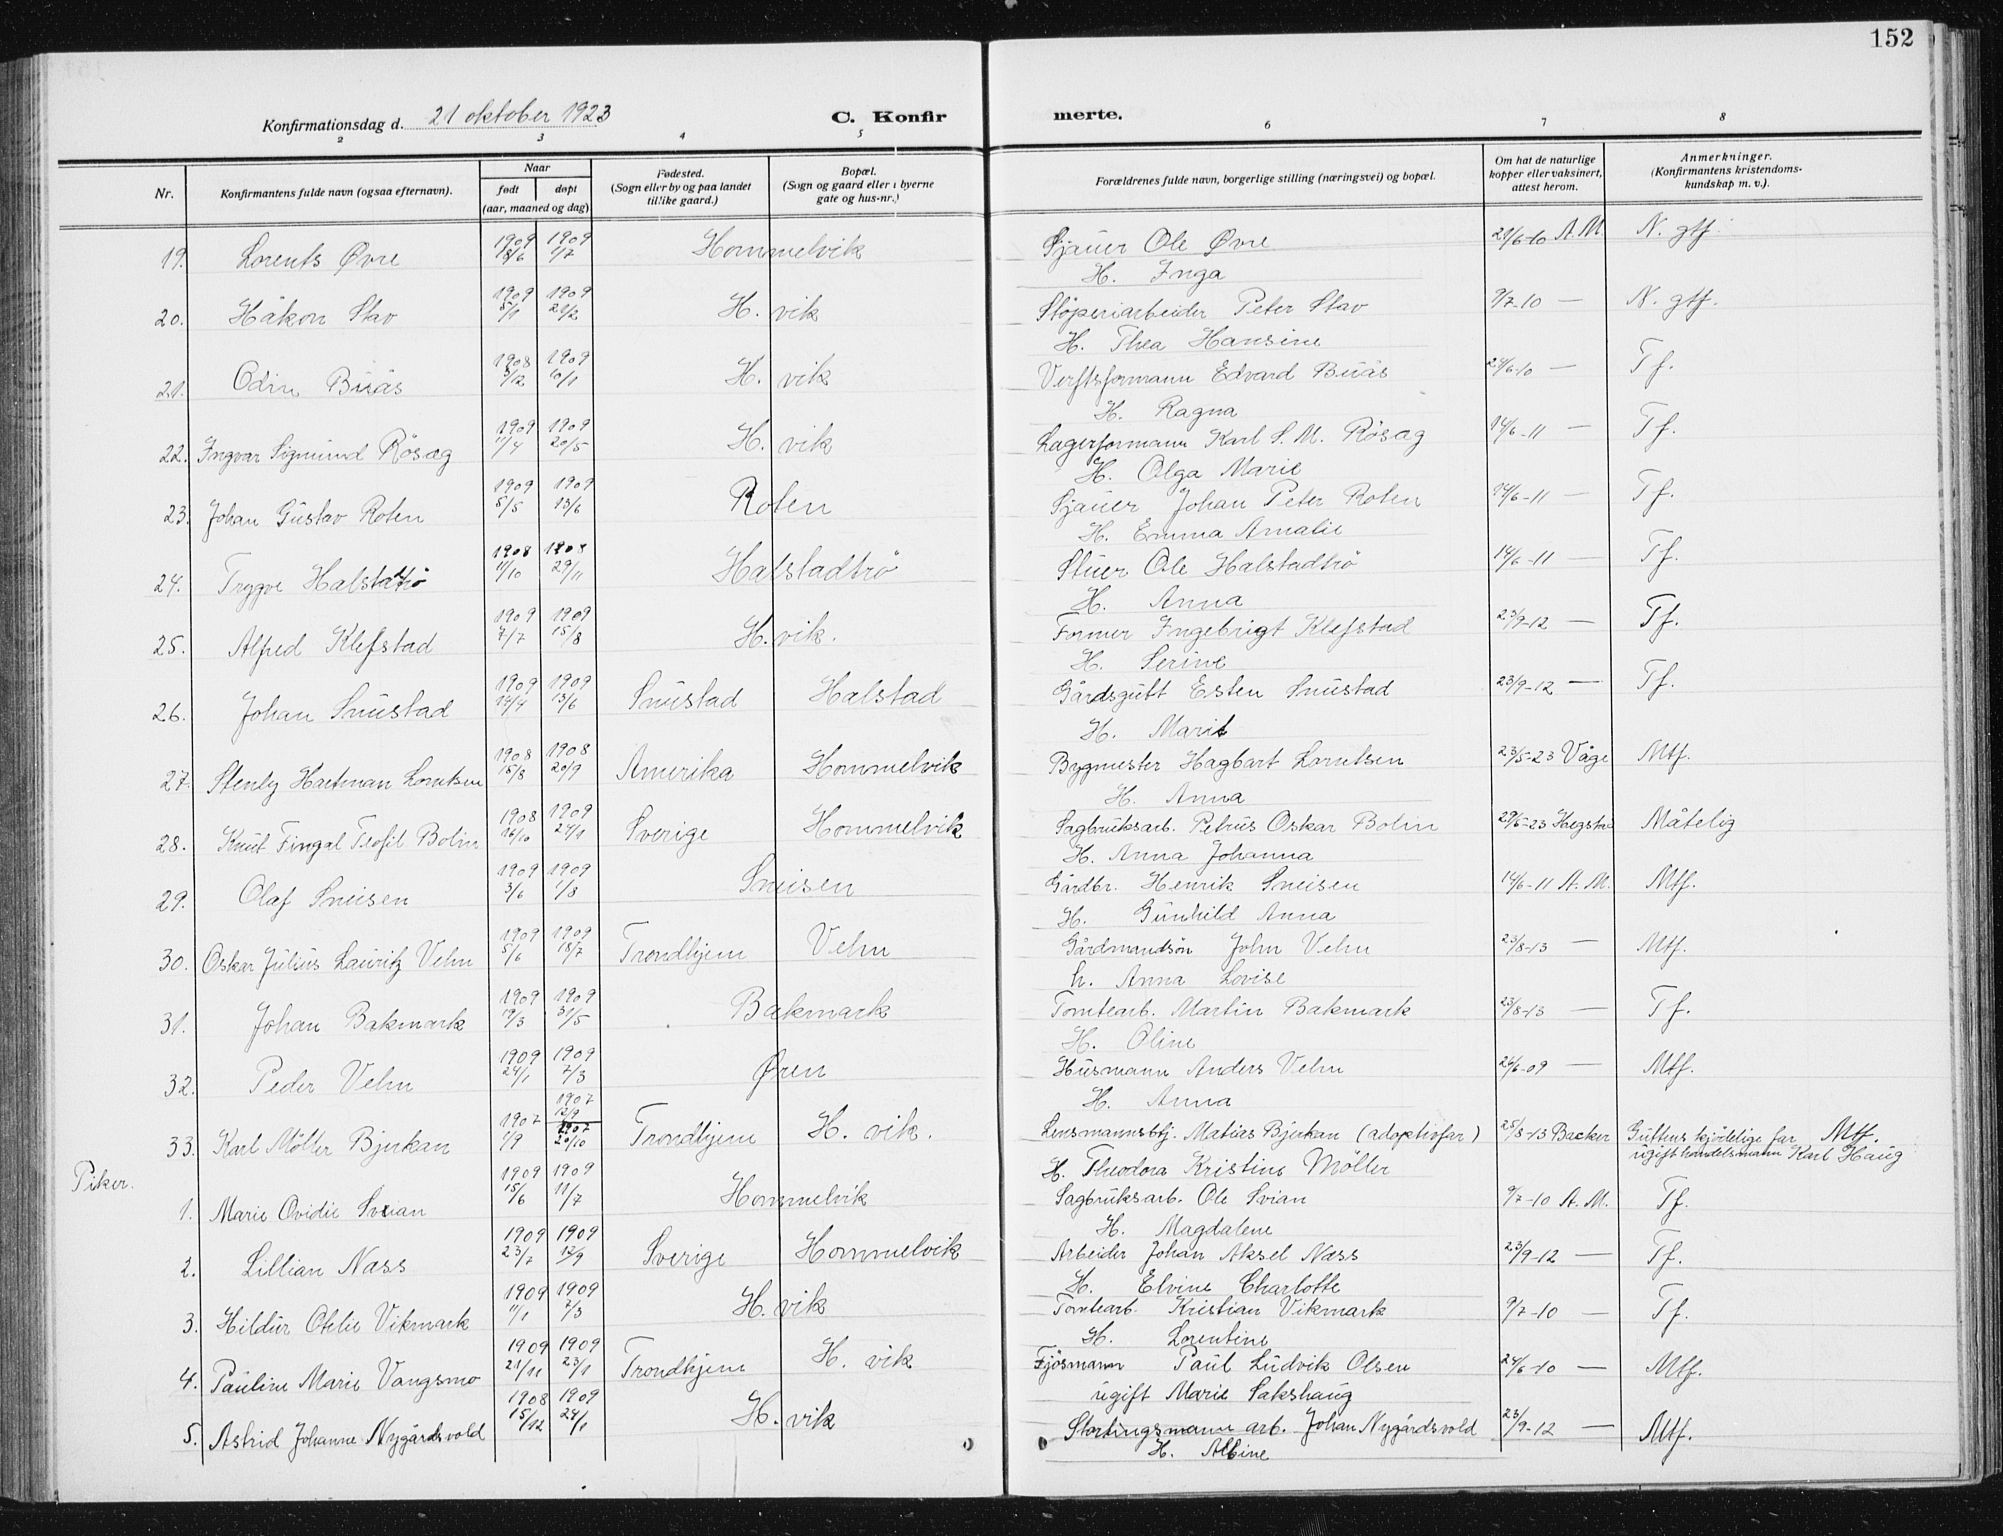 152
Konfirmationsdag d. 21 oktober 1923 C. Konfirmerte.
2 3 4 5 6 7 8
Nr. Konfirmantens fulde navn (ogsaa efternavn). Naar født døpt (aar, maaned og dag) Fødested. (Sogn eller by og paa landet tillike gaard.) Bopæl. (Sogn og gaard eller i byerne gate og hus-nr.) Forældrenes fulde navn, borgerlige stilling (næringsvei) og bopæl. Om hat de naturlige kopper eller vaksinert, attest herom. Anmerkninger. (Konfirmantens kristendomskundskap m. v.).
19. Lorents Øvre 1909 18/6 1909 1/7 Hommelvik Sjauer Ole Øvre 21/6-10 A. M. N. gtf.
H. Inga
20. Håkon Stav 1909 5/1 1909 21/2 H. vik Støperiarbeider Peter Stav 9/7-10 — N. gtf.
H. Thea Hansine
21. Odin Buås 1908 5/12 1909 10/1 H. vik Verftsformann Edvard Buås 24/6-10 — Tf.
H. Ragna
22. Ingvar Sigmund Rösæg 1909 11/4 1909 20/5 H. vik Lagerformann Karl S. M. Rösæg 14/6-11 — Tf.
H. Olga Marie
23. Johan Gustav Roten 1909 5/5 1909 13/6 Roten Sjauer Johan Peter Roten 14/6-11 — Tf.
H. Emma Amalie
24. Trygve Halstadtrö 1908 11/10 1908 29/11 Halstadtrö Stuer Ole Halstadtrö 14/6-11 — Tf.
H. Anna
25. Alfred Klefstad 1909 7/7 1909 15/8 H. vik. Former Ingebrigt Klefstad 23/9-12 — Tf.
H. Serine
26. Johan Snustad 1909 14/4 1909 13/6 Snustad Halstad Gårdsgutt Esten Snustad 23/9-12 — Tf.
H. Marit
27. Stenly Hartman Lorntsen 1908 15/8 1908 20/9 Amerika Hommelvik Bygmester Hagbart Lorntsen 23/5-23 Våge Mtf.
H. Anna
28. Knut Fingal Teofil Bolin 1908 16/10 1909 24/1 Sverige Hommelvik Sagbruksarb. Petrus Oskar Bolin 29/5-23 Hegstad Måtelig
H. Anna Johanna
29. Olaf Sneisen 1909 3/6 1909 1/8 Sneisen Gårdbr. Henrik Sneisen 14/6-11 A. M. Mtf.
H. Gunhild Anna
30. Oskar Julius Lauritz Velve 1909 5/6 1909 18/7 Trondhjem Velve Gårdmandsön John Velve 23/8-13 — Mtf.
h. Anna Lovise
31. Johan Bakmark 1909 19/3 1909 31/5 Bakmark Tomtearb. Martin Bakmark 23/8-13 — Tf.
H. Oline
32. Peder Velve 1909 24/1 1909 7/3 Øren Husmann Anders Velve 24/6-09 — Mtf.
H. Anna
33. Karl Möller Bjerkan 1907 1/9 1907 12/9 1907 20/10 Trondhjem H. vik. Lensmannsbtj. Matias Bjerkan (adoptivfar) 25/8-13 Backer Guttens kjödelige far Mtf.
ugift handelsmann Karl Haug
H. Theodora Kristine Möller
Piker.
1. Marie Ovidie Svean 1909 15/6 1909 11/7 Hommelvik Sagbruksarb. Ole Svian 9/7-10 A. M. Tf.
H. Magdalene
2. Lillian Næss 1909 23/7 1909 12/9 Sverige Hommelvik Arbeider Johan Aksel Næss 23/9-12 — Tf.
H. Elvine Charlotte
3. Hildur Otelie Vikmark 1909 11/1 1909 7/3 H. vik Tomtearb. Kristian Vikmark 9/7-10 — Tf.
H. Lorentine
4. Pauline Marie Vangsmo 1909 21/11 1909 23/1 Trondhjem H. vik Fjösmann Paul Ludvik Olsen 24/6-10 — Mtf.
ugift Marie Sakshaug
5. Astrid Johanne Nygårdsvold 1908 15/12 1909 24/1 H. vik Stortingsmann arb. Johan Nygårdsvold 23/9-12 — Mtf.
H. Albine